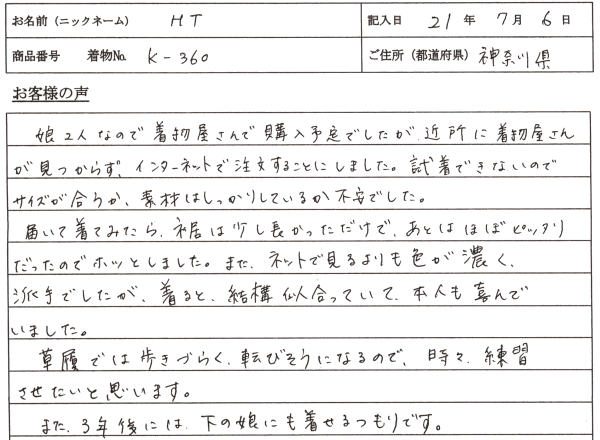 お名前（ニックネーム） HT 記入日 21 年 7 月 6 日
商品番号 着物No. K-360 ご住所（都道府県） 神奈川県
お客様の声
娘2人なので着物屋さんで購入予定でしたが、近所に着物屋さん
が見つからず、インターネットで注文することにしました。試着できないので
サイズが合うか、素材はしっかりしているか不安でした。
届いて着てみたら、裾は少し長かっただけで、あとはほぼピッタリ
だったのでホッとしました。また、ネットで見るよりも色が濃く、
派手でしたが、着ると、結構似合っていて、本人も喜んで
いました。
草履では歩きづらく、転びそうになるので、時々、練習
させたいと思います。
また、3年後には、下の娘にも着せるつもりです。